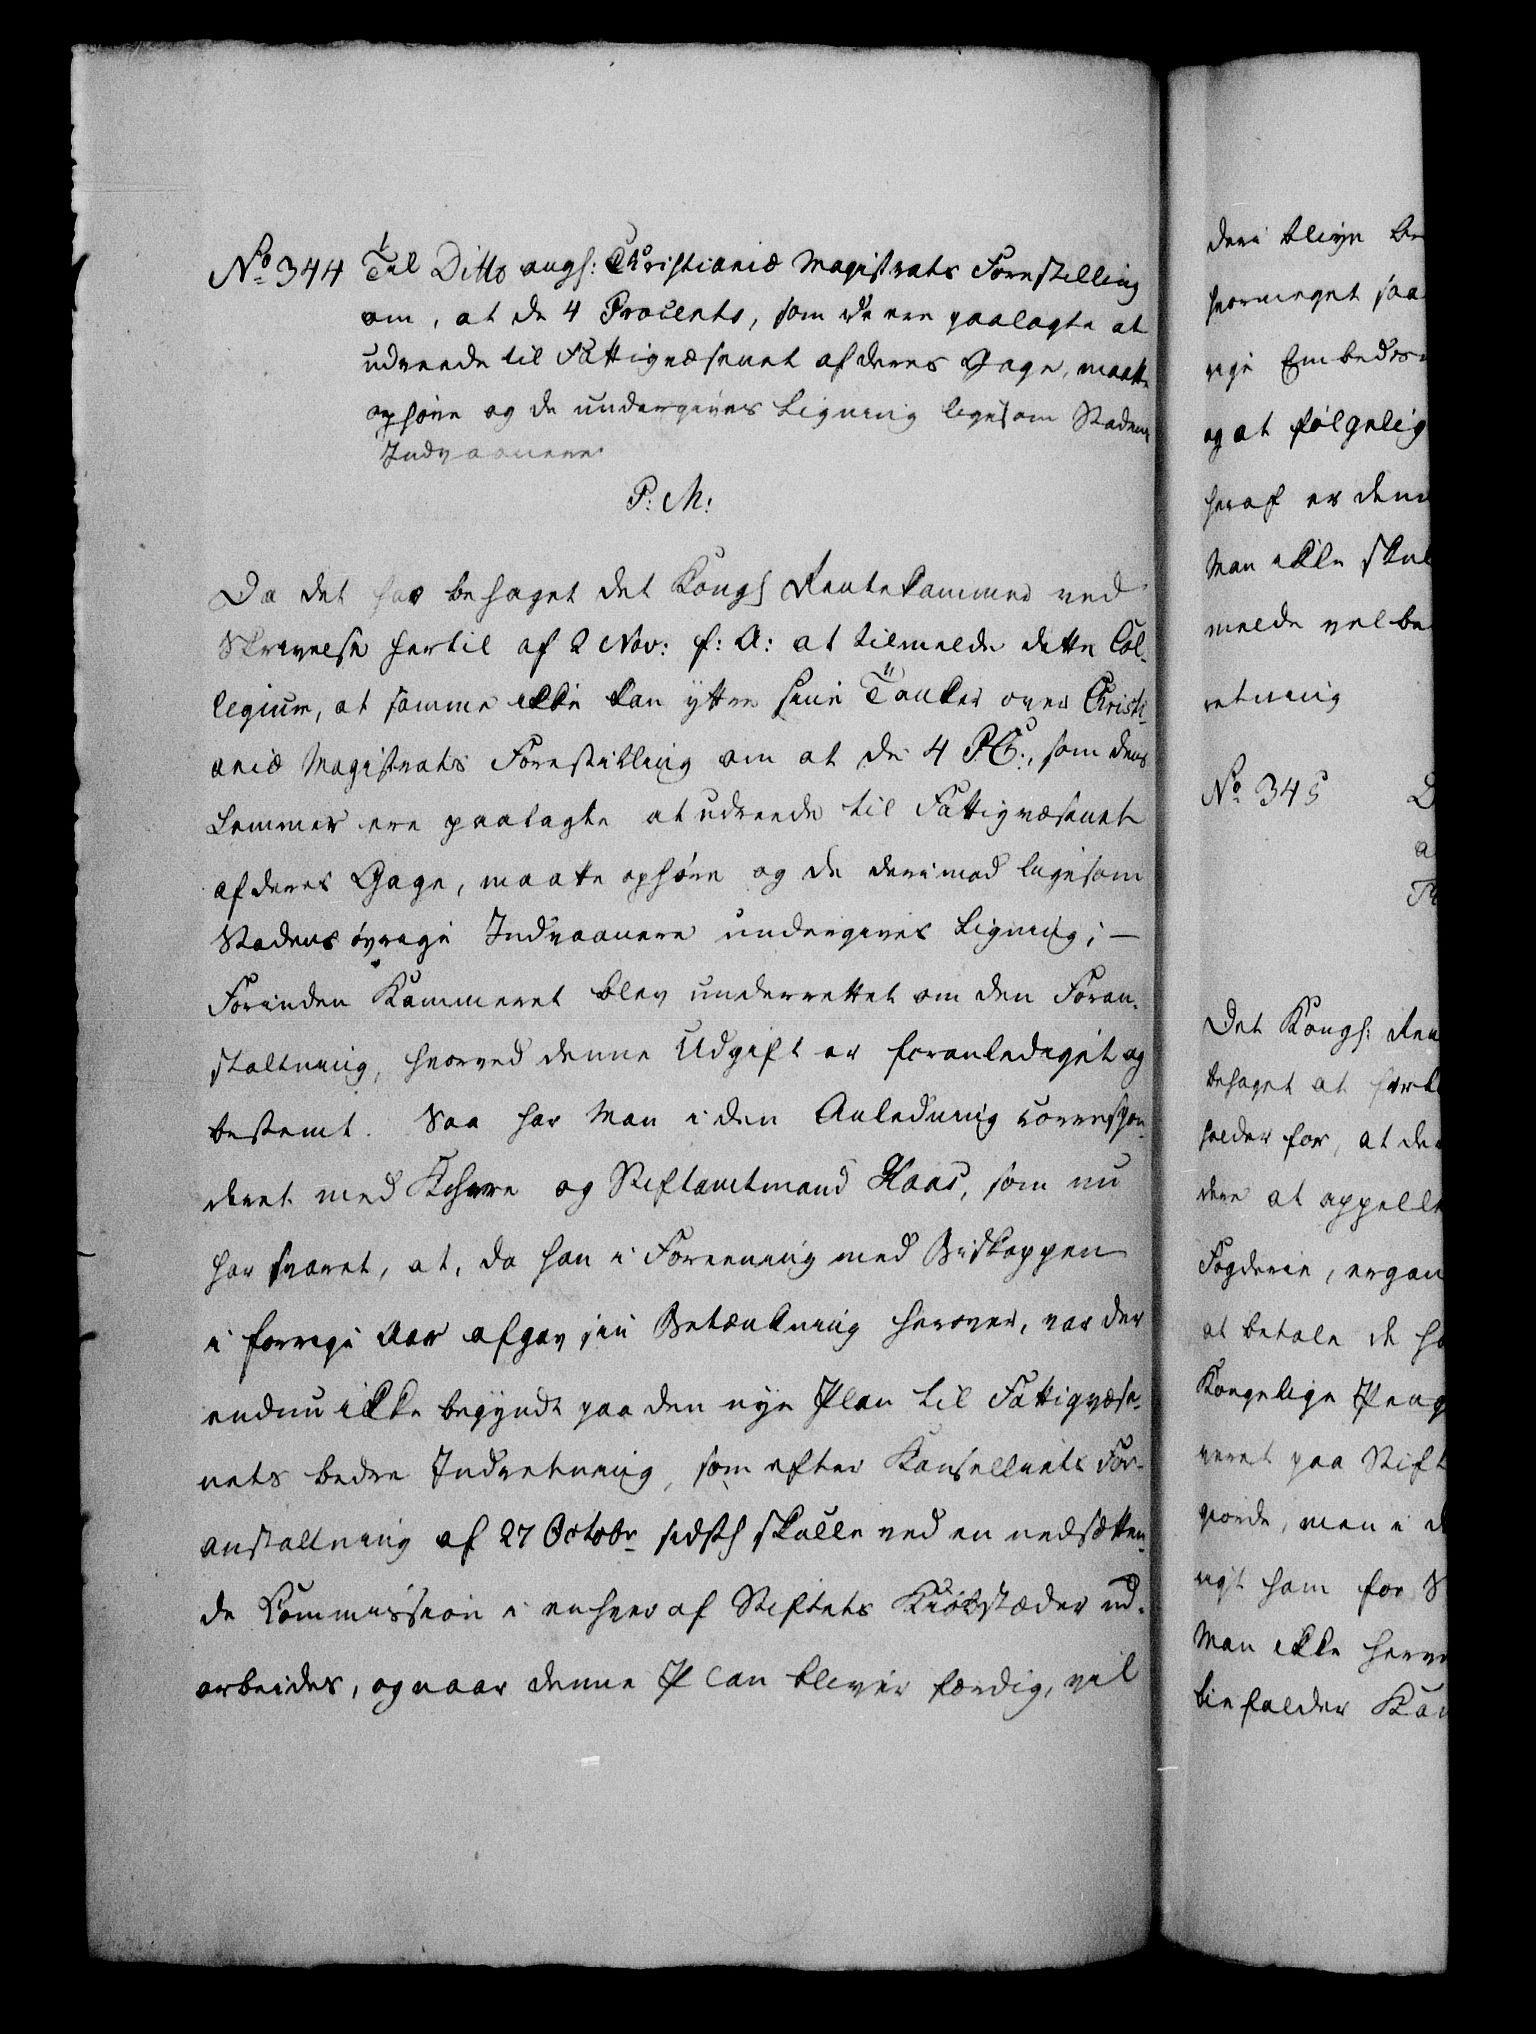 No. 344 Til Ditto angs: Christianiæ Magistrats Forestilling
om, at de 4 Procento, som de ere paalagte at
udreede til Fattigvæsenet af deres Gage, maatte
ophøre og de undergives Ligning ligesom Stadens
Indvaanere.
P: M:
Da det har behaget det Kongs Rentekammer ved
Skrivelse hertil af 2 Nov: f: A: at tilmelde dette Col-
legium, at samme ikke kan yttre sine Tanker over Christi-
aniæ Magistrats Forestilling om at de 4 PC:, som dens
Lemmer ere paalagte at udreede til Fattigvæsenet
af deres Gage, maatte ophøre og de derimod ligesom
Stadens øvrige Indvaanere undergives Ligning; —
Forinden Kammeret blev underrettet om den Foran-
staltning, hvorved denne Udgift er foranlediget og
bestemt. Saa har Man i den Anledning correspon-
deret med Khrre og Stiftamtmand Kaas, som nu
har svaret, at, da han i Foreening med Biskoppen
i forrige Aar afgav sin Betænkning herover, var der
endnu ikke begyndt paa den nye Plan til Fattigvæse-
nets bedre Indretning, som efter Kanselliets For-
anstaltning af 27 Octobr sidsts skulle ved en nedsætten-
de Commission i enhver af Stiftets Kiøbstæder ud-
arbeides, og naar denne Plan bliver færdig, vil
deri blive
hvormeget saa
rige Embeds-
og at følgelig
heraf er den
Man ikke skul
melde velbe
retning
No. 345
Det Kongs: Ren
behaget at
holder for, at de
dere at appelle
Fogderie,
at betale de
Kongelige Peng
veret paa Stift
giorde, men i d
ligt ham for S
Man ikke herve
biefalder Kam